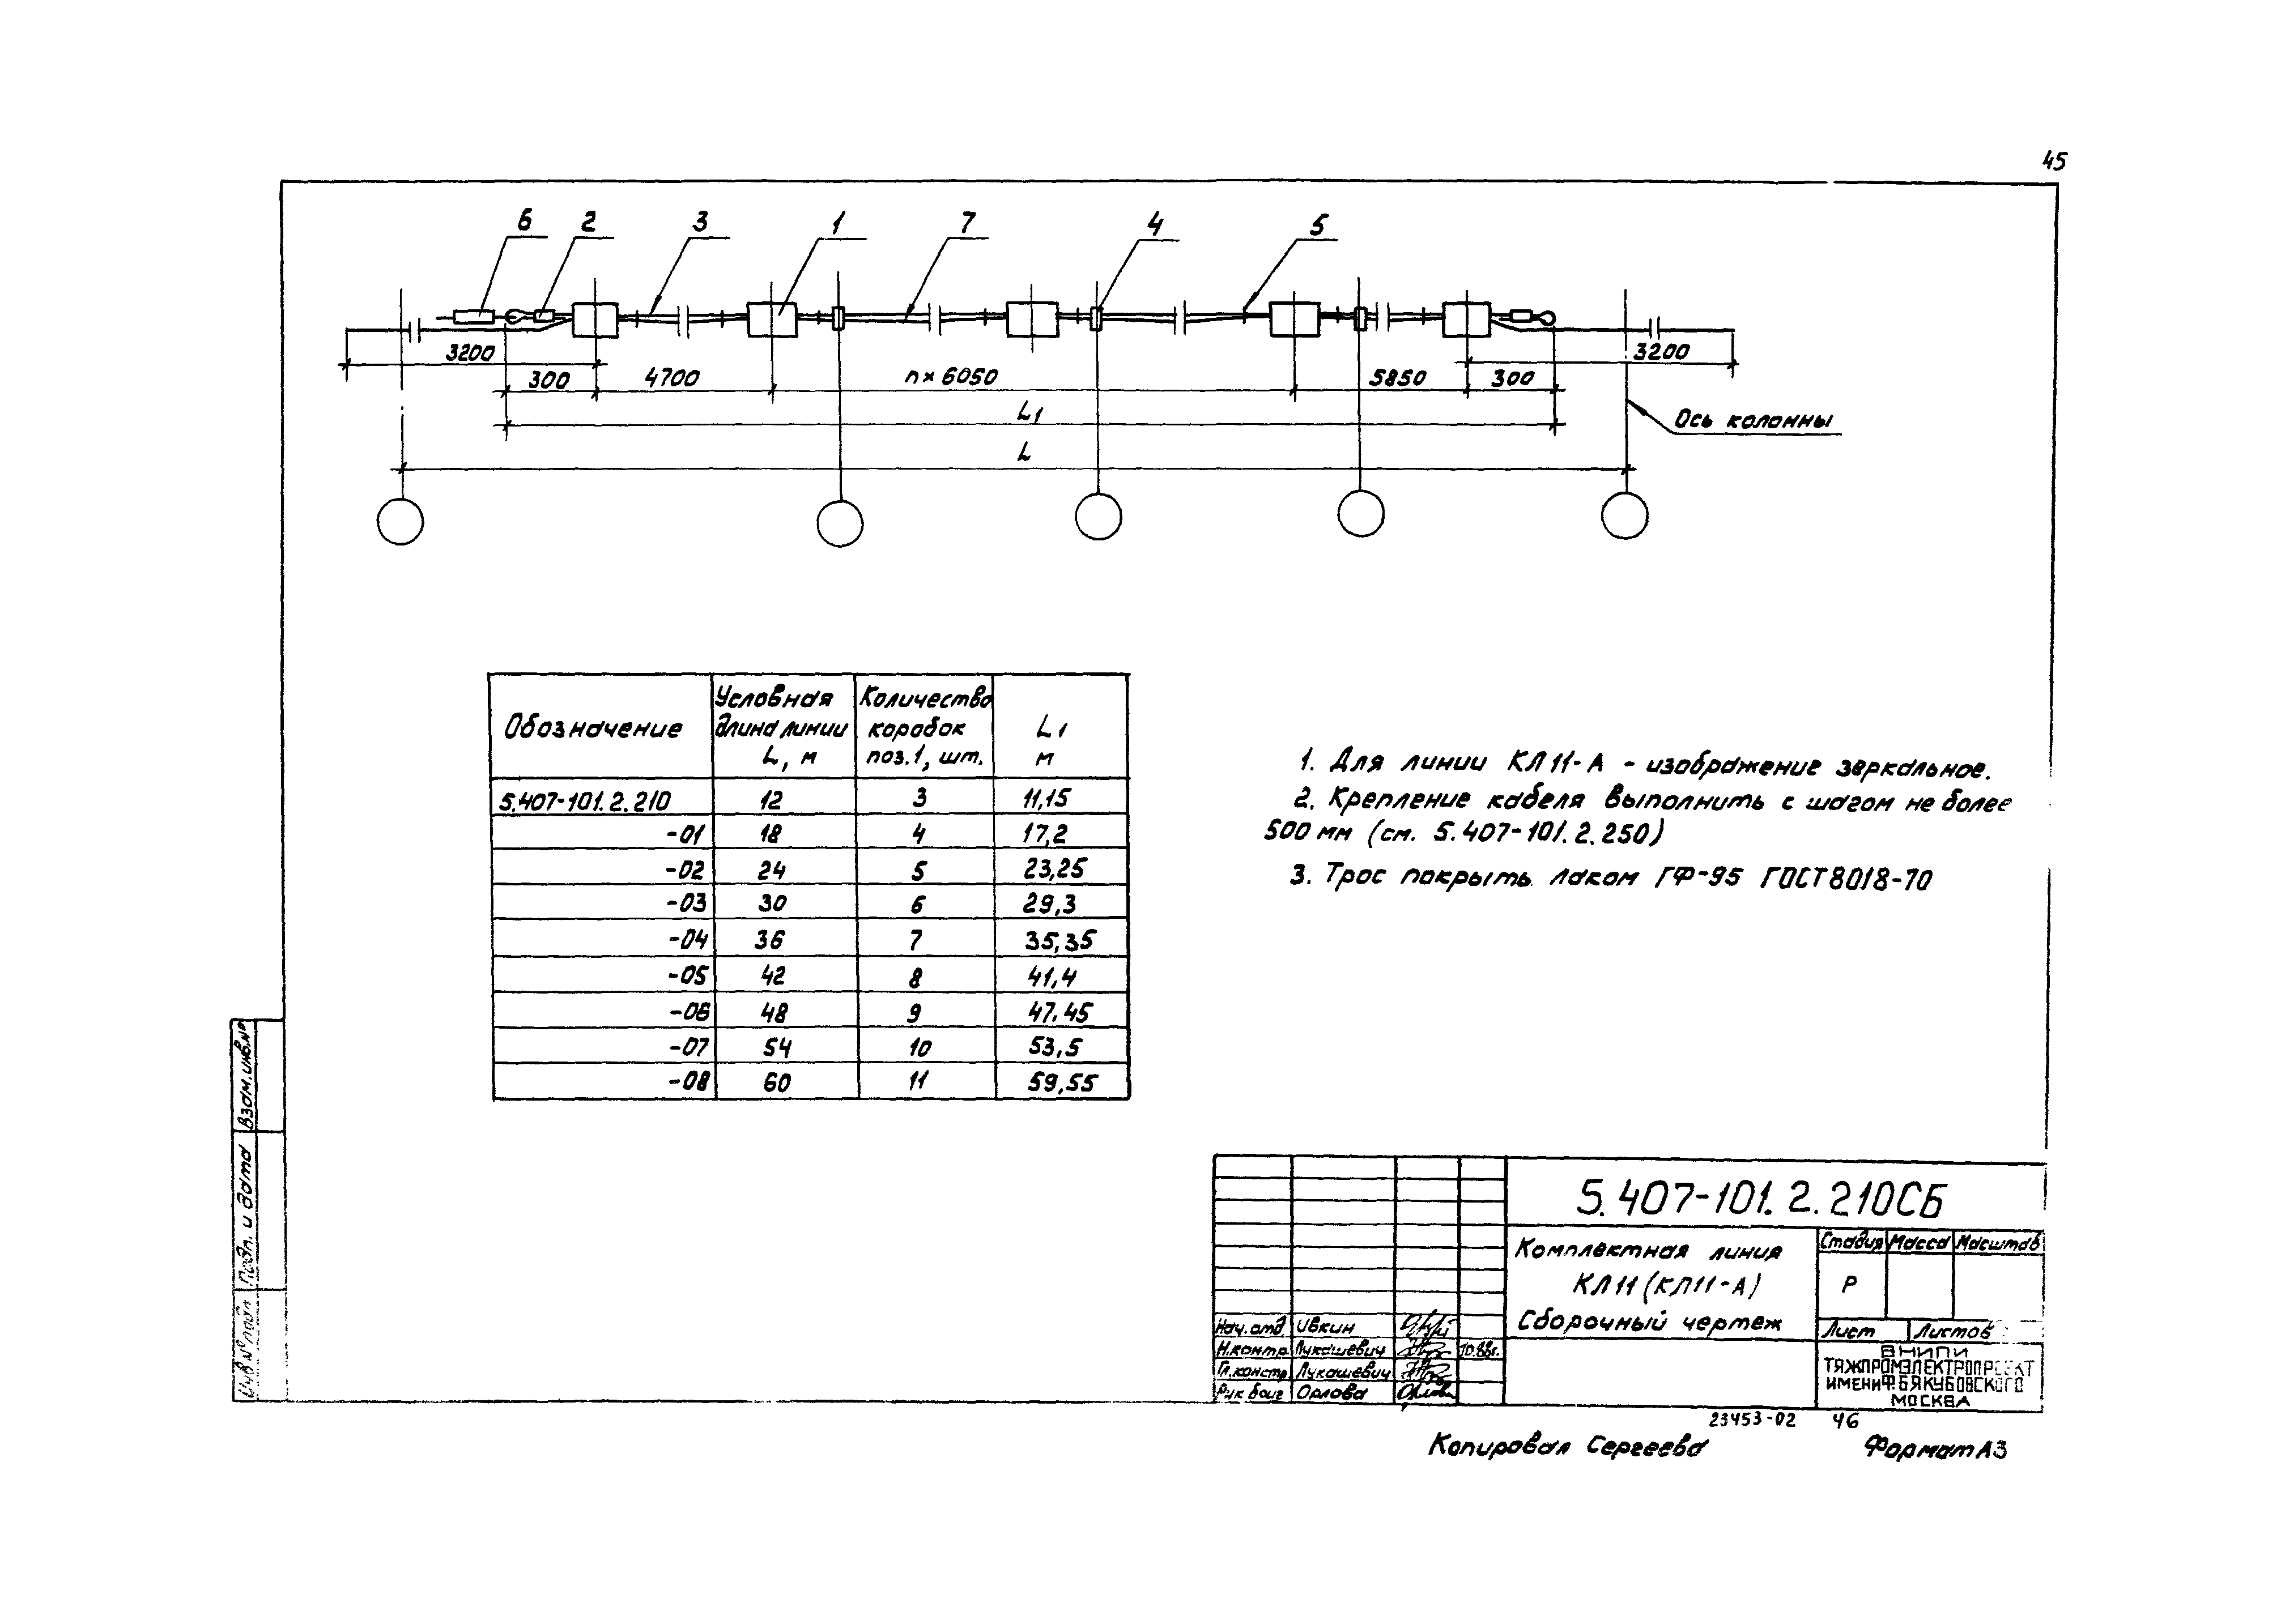 45
6 2 3 1 7 4 5
3200 3200
300 4700 n×6050 5850 300
L1
Ось колонны
L
Обозначение Условная длина линии L, м Количество коробок поз.1, шт. L1 м
5.407-101.2.210 12 3 11,15
-01 18 4 17,2
-02 24 5 23,25
-03 30 6 29,3
-04 36 7 35,35
-05 42 8 41,4
-06 48 9 47.45
-07 54 10 53,5
-08 60 11 59,55
1. Для линии КЛ11-А - изображение зеркальное.
2. Крепление кабеля выполнить с шагом не более
500 мм (см. 5.407-101.2.250)
3. Трос покрыть лаком ГФ-95 ГОСТ8018-70
Взам.инв.№
Подп. и дата
Инв.№ подл.
5.407-101.2.210СБ
Комплектная линия
КЛ11(КЛ11-А)
Сборочный чертеж
Стадия Масса Масштаб
Р
Лист Листов
Нач.отд. Ивкин
Н.контр. Лукашевич 10.88г.
Гл.констр. Лукашевич
Рук.бриг Орлова
ВНИПИ
ТЯЖПРОМЭЛЕКТРОПРОЕКТ
ИМЕНИ Ф.Б.ЯКУБОВСКОГО
МОСКВА
23453-02 46
Копировал Сергеева Формат А3